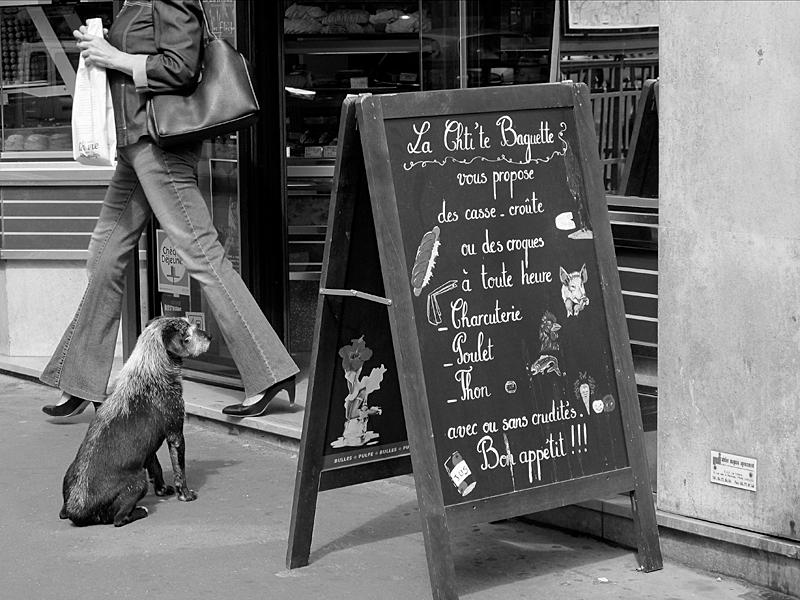 La Chti'te Baguette
vous propose
des casse-croûte
ou des croques
à toute heure
- Charcuterie
- Poulet
- Thon
avec ou sans crudités.
Bon appétit !!!
BULLES ★ PULPE ★ BULLES ★
Chèque
Déjeuner